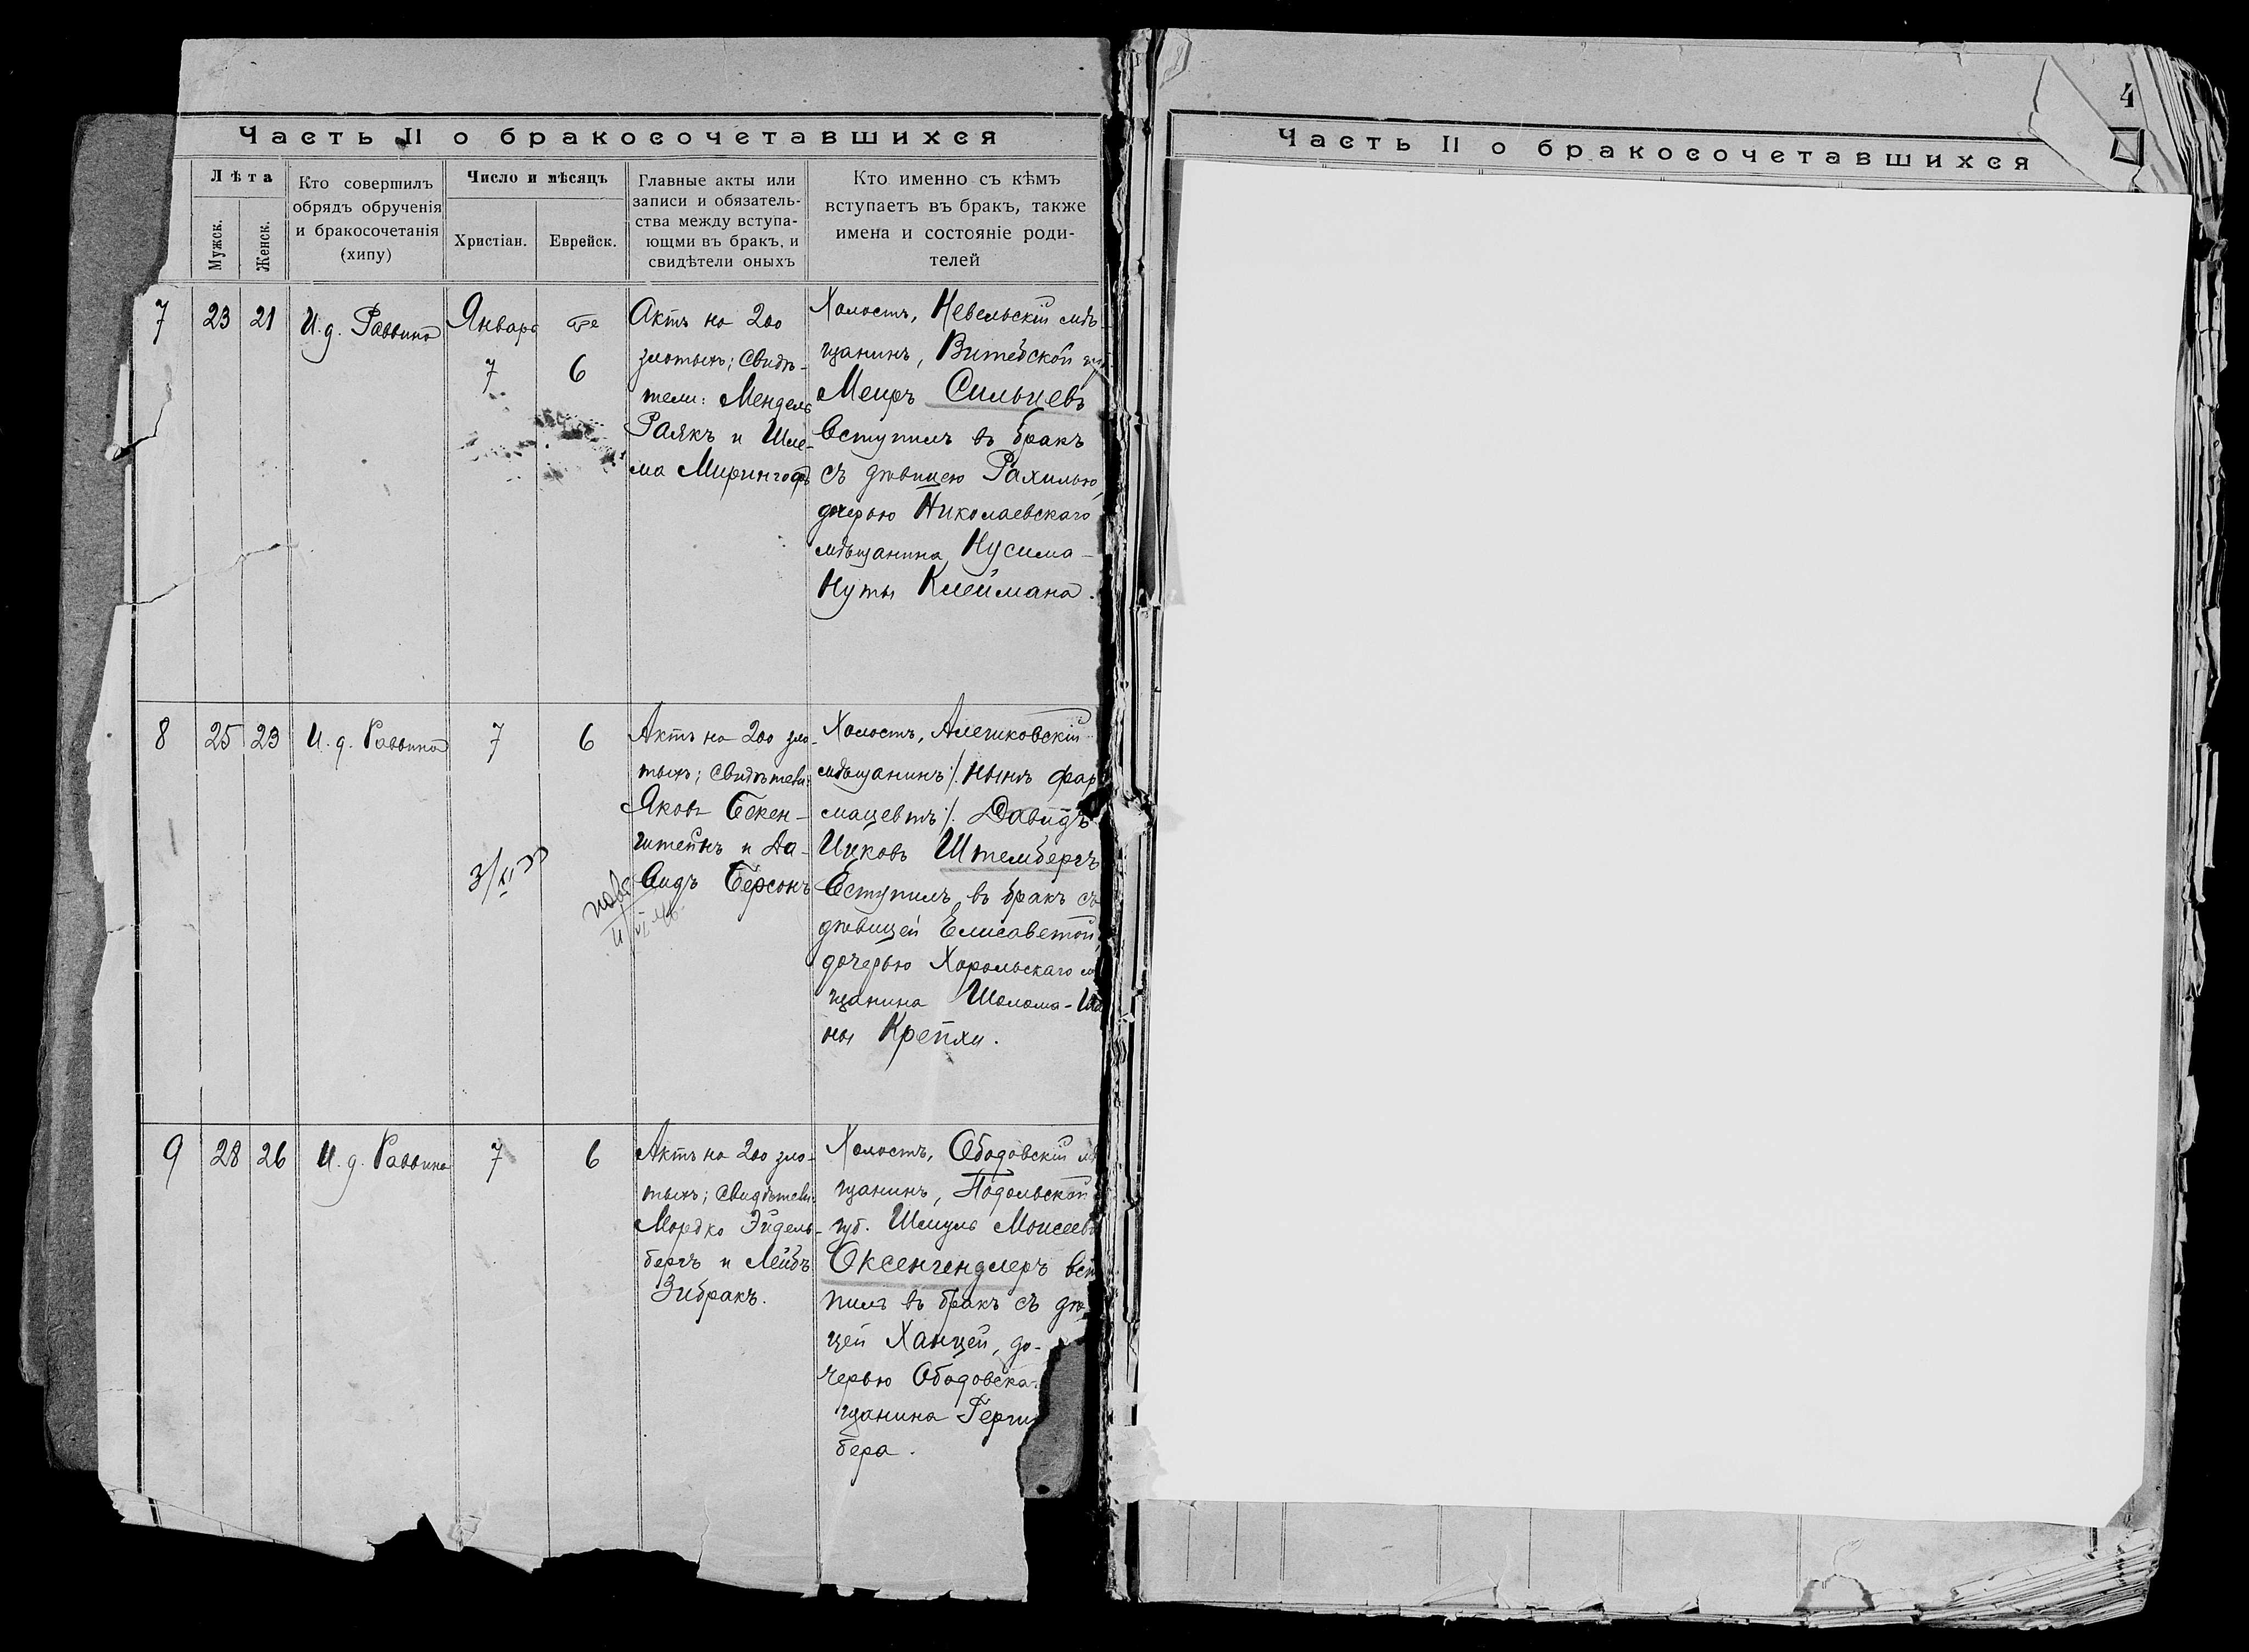 Часть II о бракосочетавшихся
Лѣта
Мужск.
Женск.
Кто совершилъ
обрядъ обрученія
и бракосочетанія
(хипу)
Число и мѣсяцъ
Христіан.
Еврейск.
Главные акты или
записи и обязатель-
ства между вступа-
ющми въ бракъ, и
свидѣтели оныхъ
Кто именно съ кѣмъ
вступаетъ въ бракъ, также
имена и состояніе роди-
телей
7
23
21
И. д. Раввина
Января
7
6
Актъ на 200
злотыхъ; свидѣ-
тели: Мендель
Раякъ и Шле-
ма Мирингофъ
Холостъ, Невельскій мѣ-
щанинъ, Витебской
Меиръ
вступилъ въ бракъ
съ дѣвицею Рахилью,
дочерью Николаевскаго
мѣщанина Нусима-
Нуты Клеймана.
8
25
23
И. д. Раввина
7
6
Актъ на 200 зло-
тыхъ; свидѣтели:
Яковъ Бекен-
штейнъ и Да-
видъ Берсонъ
Холостъ, Алешковскій
мѣщанинъ /: нынѣ фар
мацевтъ :/ Давидъ
Ицковъ Штембергъ
вступилъ въ бракъ съ
дѣвицей Елисаветой,
дочерью Хорольскаго
щанина Шолома-
ны Крепхи.
9
28
26
И. д. Раввина
7
6
Актъ на 200 зло-
тыхъ; свидѣтели:
Мордко Эйдель-
бергъ и Лейбъ
Зибракъ.
Холостъ, Ободовскій мѣ
щанинъ, Подольской
губ. Шмуль Моисеевъ
Оксенгендлеръ всту
пилъ въ бракъ съ дѣ
цей Ханцей, до-
черью Ободовска
щанина Герш
бера.
4
Часть II о бракосочетавшихся